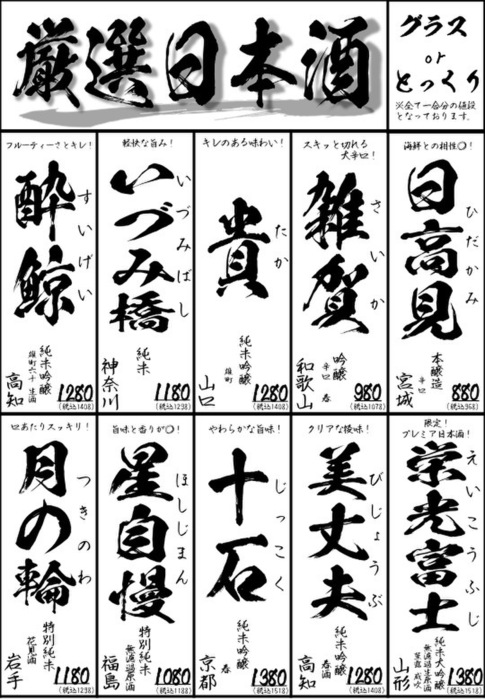 厳選日本酒
グラス
or
とっくり
※全て一合分の値段
となっております。
海鮮との相性〇!
日高見
ひだかみ
本醸造
辛口
宮城
880
(税込968)
スキッと切れる
大辛口!
雑賀
さいか
吟醸
辛口 春
和歌山
980
(税込1078)
キレのある味わい!
貴
たか
純米吟醸
雄町
山口
1280
(税込1408)
軽快な旨み!
いづみ橋
いづみばし
純米
神奈川
1180
(税込1298)
フルーティーさとキレ!
酔鯨
すいげい
純米吟醸
雄町六十 生酒
高知
1280
(税込1408)
限定!
プレミア日本酒!
栄光富士
えいこうふじ
純米大吟醸
無濾過生原酒
山形
1380
(税込1518)
クリアな後味!
美丈夫
びじょうぶ
純米吟醸
春
高知
1080
(税込1188)
やわらかな旨味!
十石
じっこく
純米吟醸
春
京都
1380
(税込1518)
旨味と香りが〇!
星自慢
ほしじまん
特別純米
無濾過原酒
福島
1080
(税込1188)
口あたりスッキリ!
月の輪
つきのわ
特別純米
花見酒
岩手
1180
(税込1298)